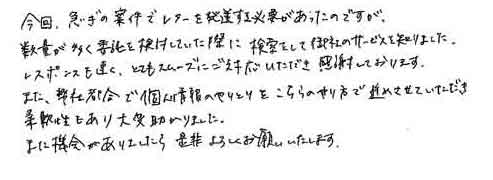 今回、急ぎの案件でレターを発送する必要があったのですが、
数量が多く委託を検討していた際に検索をして御社のサービスを知りました。
レスポンスも速く、とてもスムーズにご対応いただき感謝しております。
また、弊社都合で個人情報のやりとりをこちらのやり方で進めさせていただき
柔軟性もあり大変助かりました。
また機会がありましたら是非よろしくお願いいたします。